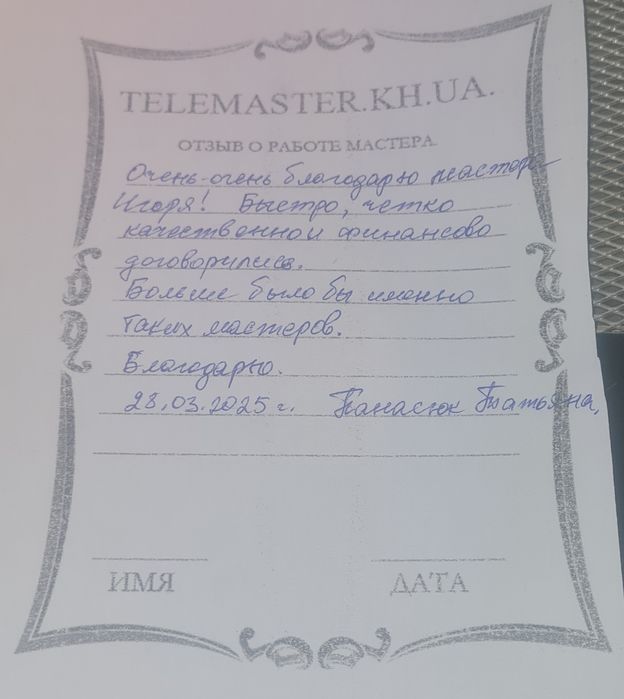 TELEMASTER.KH.UA.
ОТЗЫВ О РАБОТЕ МАСТЕРА
Очень-очень благодарю мастера
Игоря! Быстро, четко
качественно и финансово
договорились.
Больше было бы именно
таких мастеров.
Благодарю.
28.03.2025 г. Панасюк Татьяна,
ИМЯ ДАТА